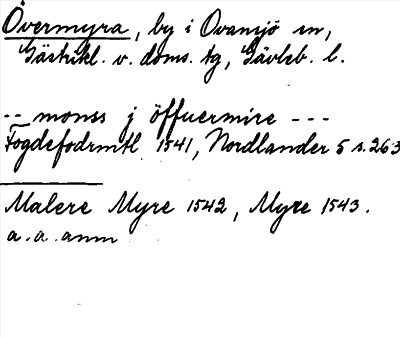 Övermyra, by i Ovansjö sn,
Gästrikl. v. doms. tg, Gävleb. l.
-- monss j öffuermire ---
Fogdefodrmtl 1541, Nordlander 5 s. 263
Malere Myre 1542, Myre 1543.
a. a. anm